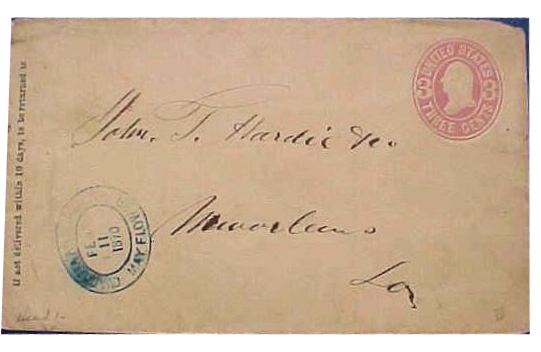 If not delivered within 10 days, to be returned to
UNITED STATES
3 3
THREE CENTS
John. T. Hardie & Co
Neworleans
La.
FEB
11
1870
MAY FLOWER